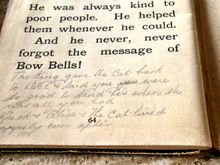 He was always kind to
poor people. He helped
them whenever he could.
And he never, never
forgot the message of
Bow Bells!
The King gave the Cat back
to and said you were
so good to lend her when
all you had
&  The Cat lived
happily ever after.
64